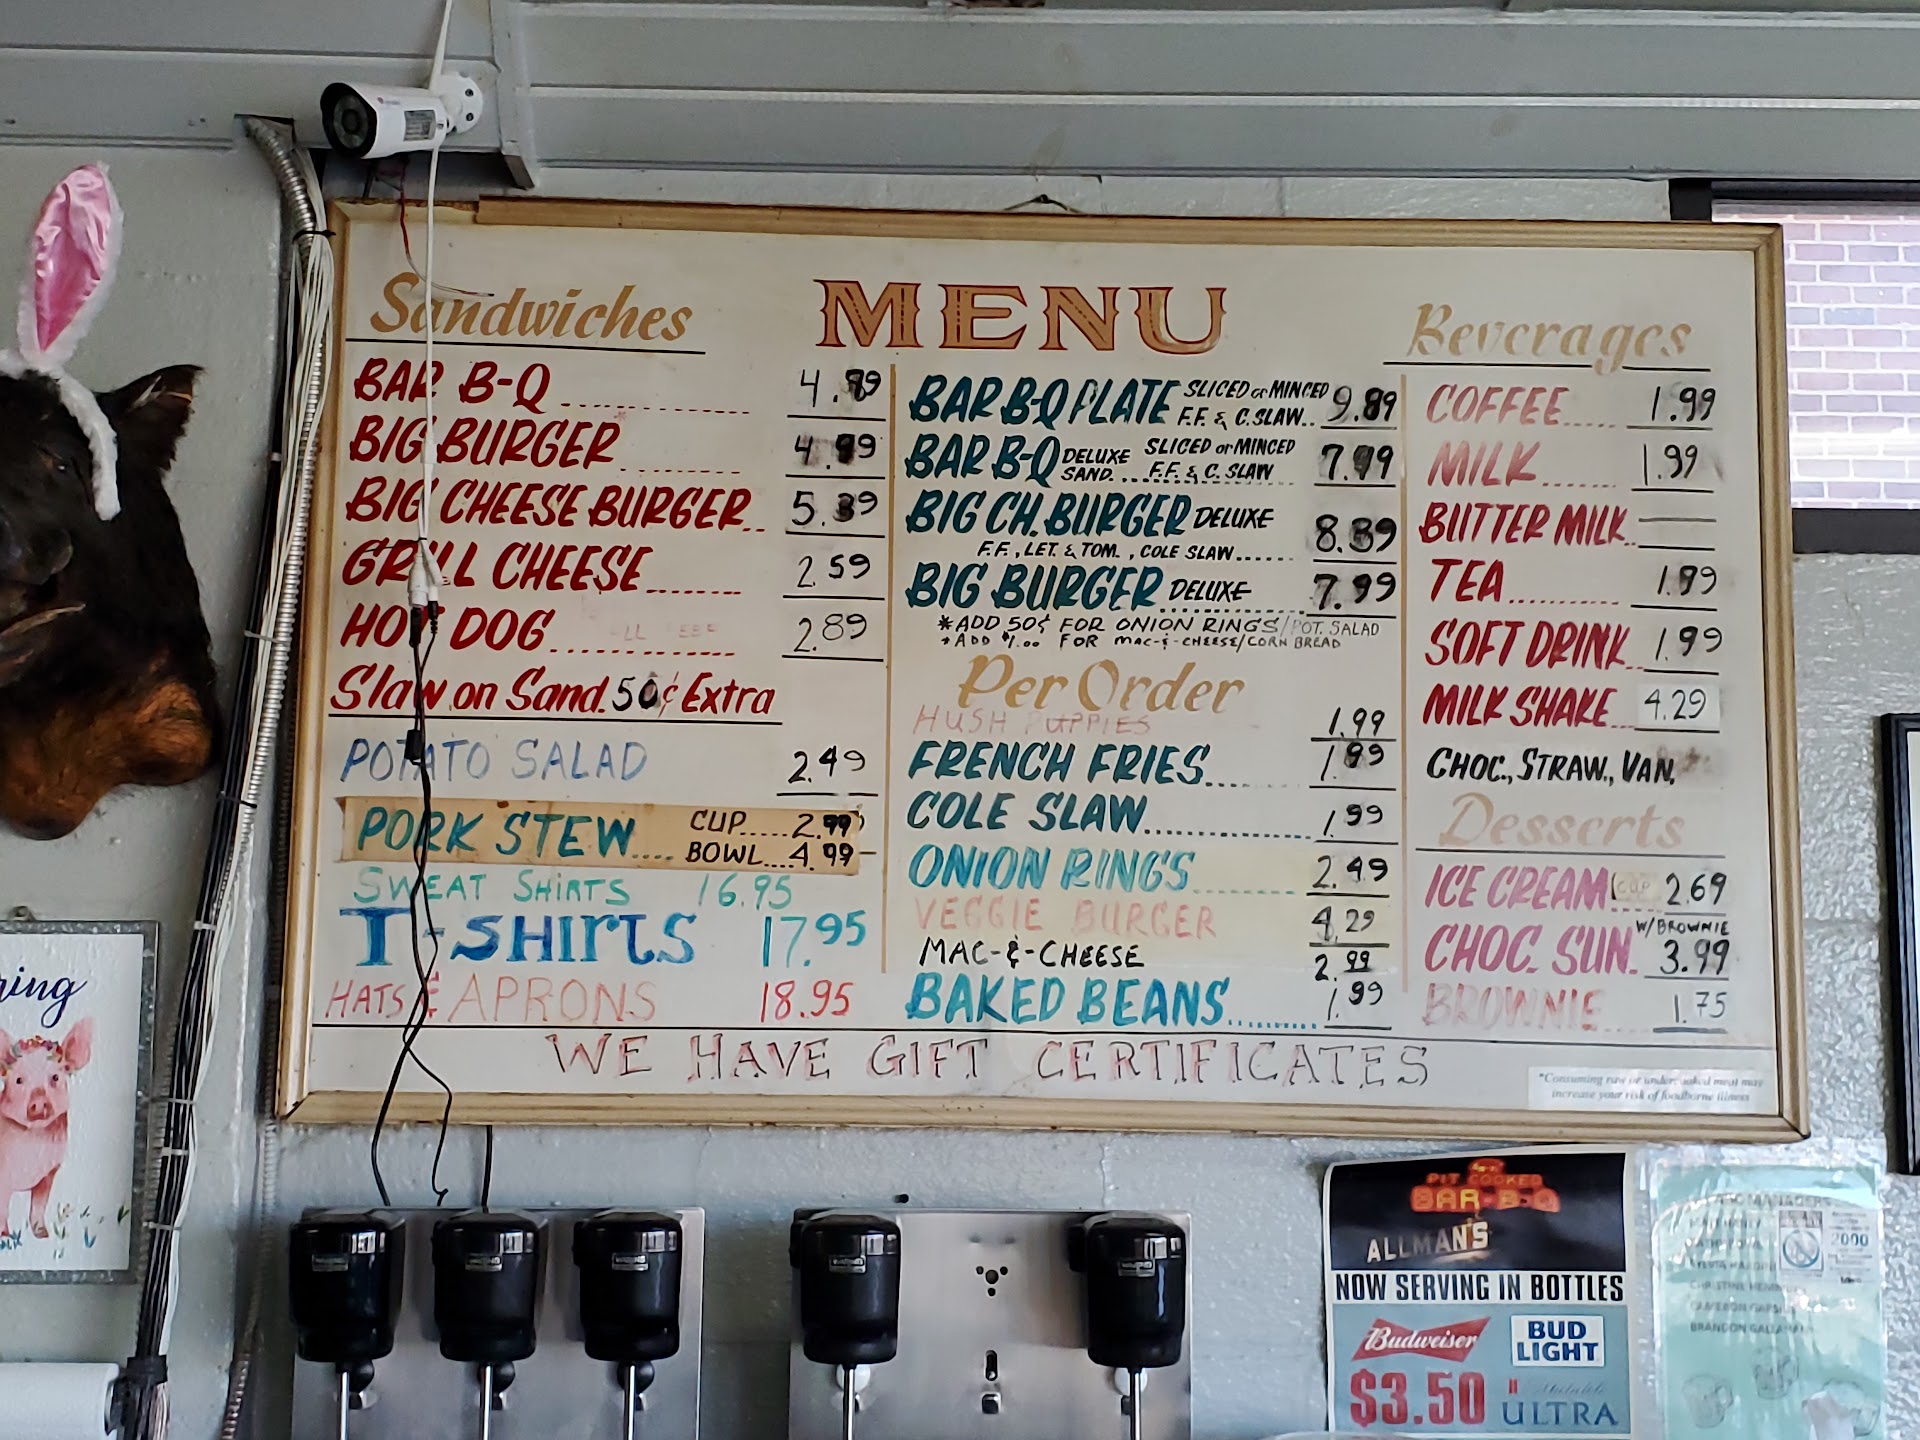 MENU
Sandwiches
BAR B-Q 4.99
BIG BURGER 4.99
BIG CHEESE BURGER.. 5.39
GRILL CHEESE 2.59
HOT DOG 2.89
Slaw on Sand. 50¢ Extra
POTATO SALAD 2.49
PORK STEW.... CUP.....2.99
BOWL...4.99
SWEAT SHIRTS 16.95
T-SHIRTS 17.95
HATS & APRONS 18.95
BAR B-Q PLATE SLICED or MINCED 9.89
F.F. & C. SLAW..
BAR B-Q DELUXE SAND. SLICED or MINCED 7.99
F.F. & C. SLAW
BIG CH. BURGER DELUXE 8.39
F.F., LET. & TOM., COLE SLAW......
BIG BURGER DELUXE 7.99
*ADD 50¢ FOR ONION RINGS/POT. SALAD
*ADD $1.00 FOR MAC-&-CHEESE/CORN BREAD
Per Order
HUSH PUPPIES 1.99
FRENCH FRIES 1.99
COLE SLAW 1.99
ONION RINGS 2.49
VEGGIE BURGER 4.29
MAC-&-CHEESE 2.99
BAKED BEANS 1.99
Beverages
COFFEE 1.99
MILK 1.99
BUTTER MILK
TEA 1.99
SOFT DRINK 1.99
MILK SHAKE 4.29
CHOC., STRAW., VAN.
Desserts
ICE CREAM CUP 2.69
W/BROWNIE
CHOC. SUN. 3.99
BROWNIE 1.75
WE HAVE GIFT CERTIFICATES
*Consuming raw or undercooked meat may
increase your risk of foodborne illness
PIT COOKED
BAR-B-Q
ALLMAN'S
NOW SERVING IN BOTTLES
Budweiser BUD LIGHT
$3.50 ULTRA